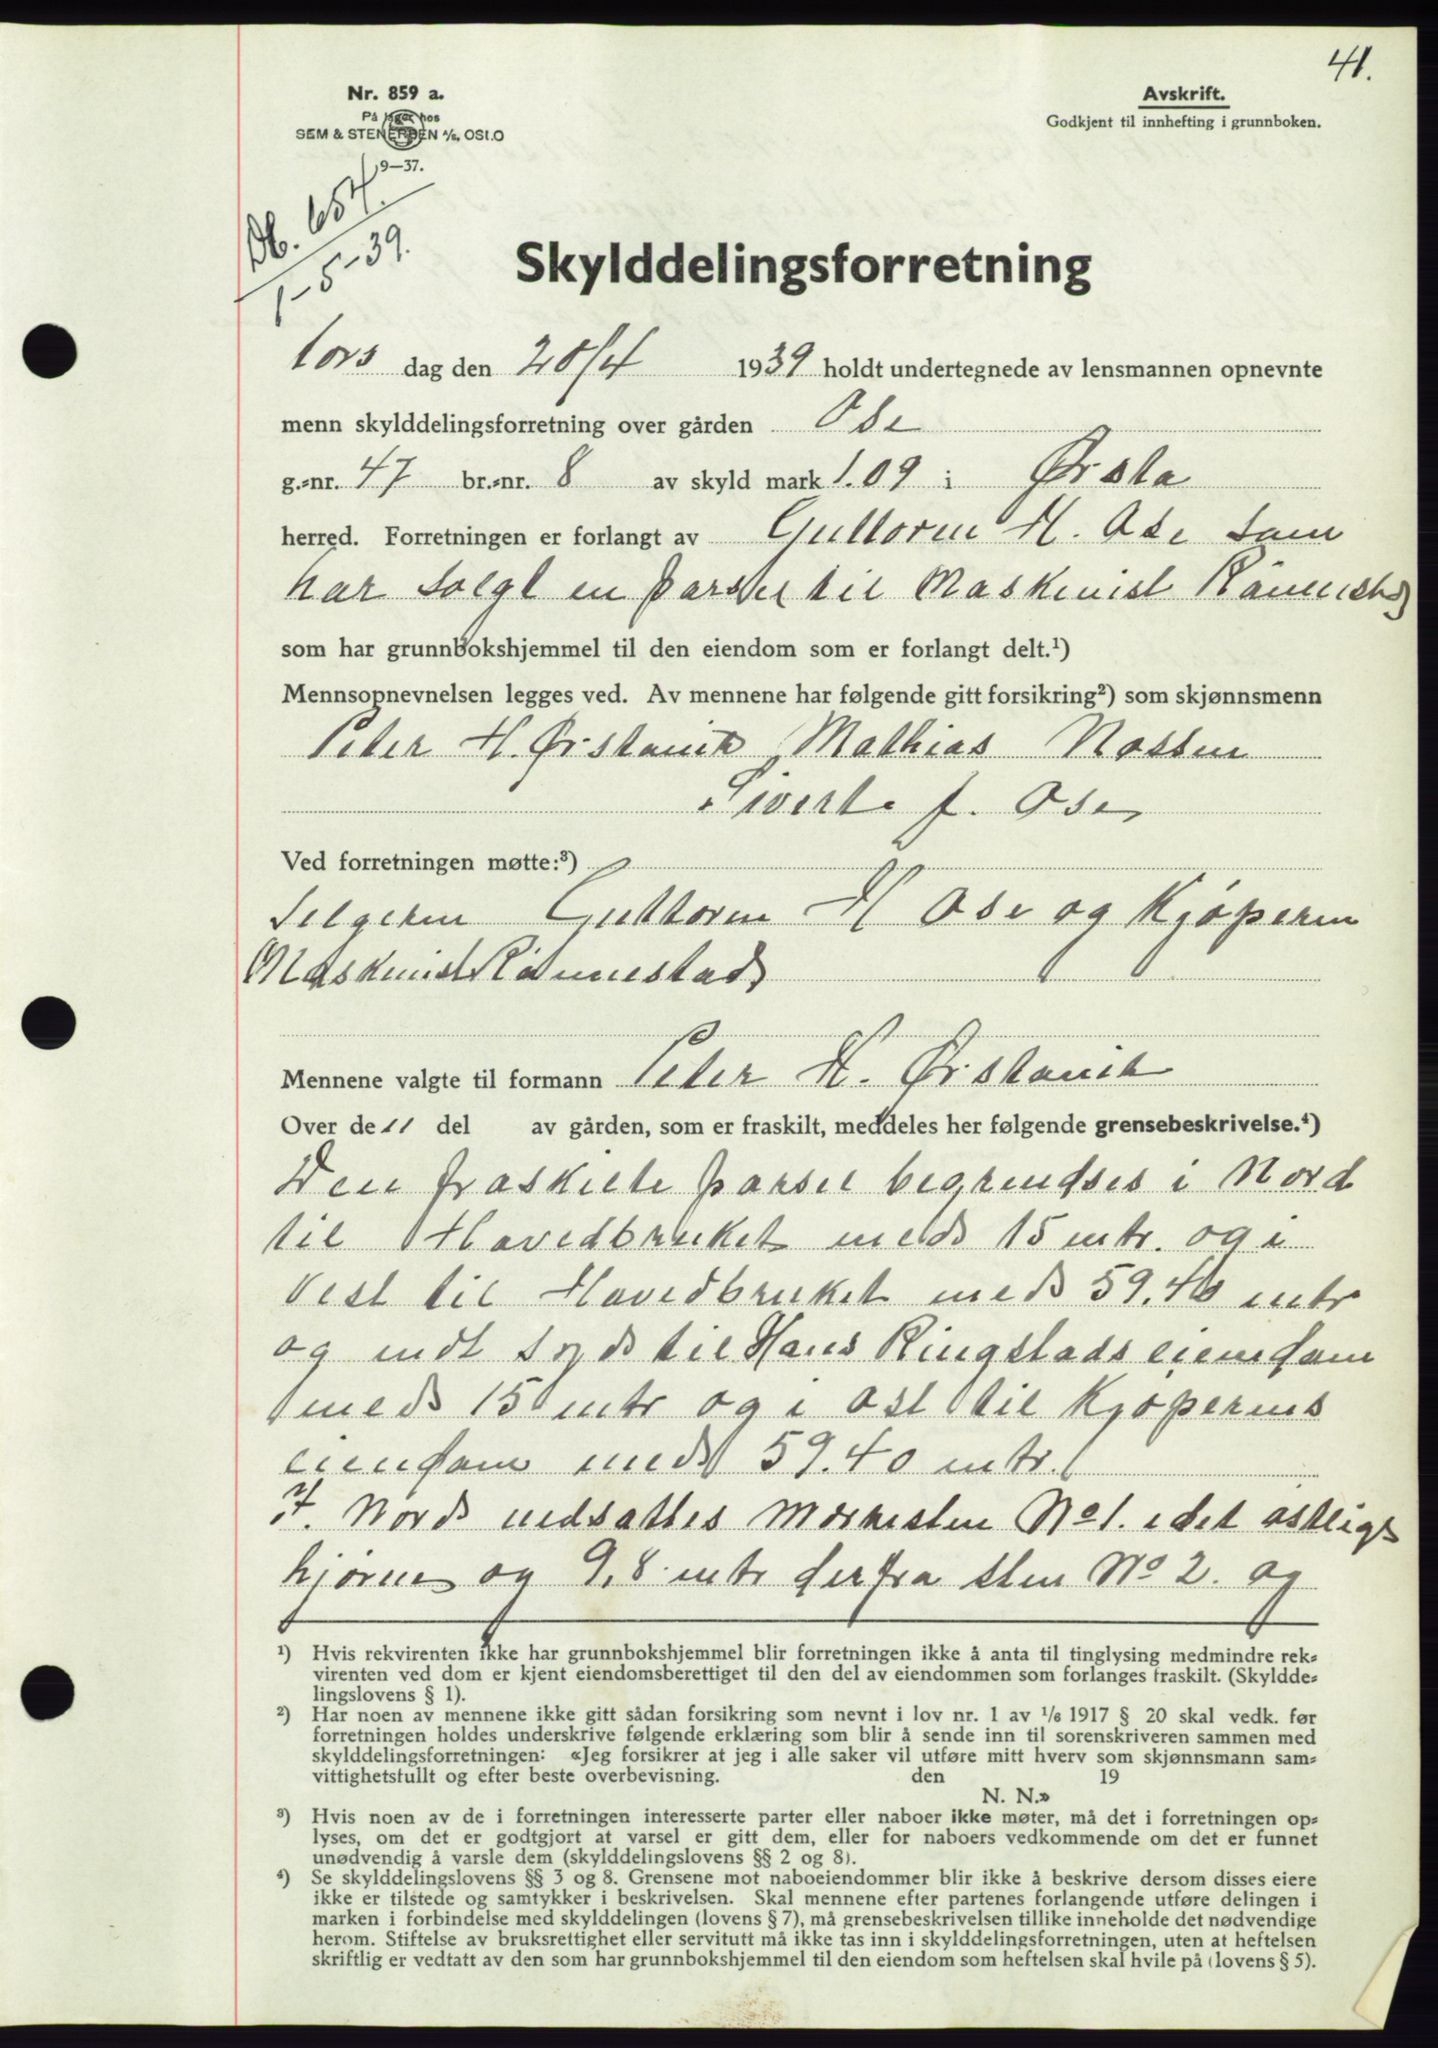 41.
Nr. 859 a.
På lager hos
SEM & STENERSEN A/S, OSLO
9—37.
Avskrift.
Godkjent til innhefting i grunnboken.
Db. 654.
1-5-39.
Skylddelingsforretning
tors dag den 20/4 1939 holdt undertegnede av lensmannen opnevnte
menn skylddelingsforretning over gården Ose
g.=nr. 47 br.=nr. 8 av skyld mark 1.09 i Ørsta
herred. Forretningen er forlangt av Guttorm H. Ose som
har solgt en parsel til Maskinist Rånnestad
som har grunnbokshjemmel til den eiendom som er forlangt delt.¹)
Mennsopnevnelsen legges ved. Av mennene har følgende gitt forsikring²) som skjønnsmenn
Peter H. Ørstavik Mathias Nossen
Sivert J. Ose
Ved forretningen møtte:³)
Selgeren Guttorm H Ose og Kjøperen
Maskinist Rånnestad
Mennene valgte til formann Peter H. Ørstavik
Over de 11 del av gården, som er fraskilt, meddeles her følgende grensebeskrivelse.⁴)
Den fraskilte parsel begrendses i Nord
til Hovedbruket med 15 mtr. og i
Vest til Hovedbruket med 59.40 mtr
og mdt Syd til Hans Ringstads eiendom
med 15 mtr og i ost til Kjøperens
eiendom med 59.40 mtr.
I. Nord nedsattes Merkesten No 1. i det ostlige
hjørne og 9,8 mtr derfra sten No 2. og
¹) Hvis rekvirenten ikke har grunnbokshjemmel blir forretningen ikke å anta til tinglysing medmindre rek=
virenten ved dom er kjent eiendomsberettiget til den del av eiendommen som forlanges fraskilt. (Skyldde=
lingslovens § 1).
²) Har noen av mennene ikke gitt sådan forsikring som nevnt i lov nr. 1 av 1/6 1917 § 20 skal vedk. før
forretningen holdes underskrive følgende erklæring som blir å sende inn til sorenskriveren sammen med
skylddelingsforretningen: «Jeg forsikrer at jeg i alle saker vil utføre mitt hverv som skjønnsmann sam=
vittighetsfullt og efter beste overbevisning. den 19
N. N.»
³) Hvis noen av de i forretningen interesserte parter eller naboer ikke møter, må det i forretningen op=
lyses, om det er godtgjort at varsel er gitt dem, eller for naboers vedkommende om det er funnet
unødvendig å varsle dem (skylddelingslovens §§ 2 og 8).
⁴) Se skylddelingslovens §§ 3 og 8. Grensene mot naboeiendommer blir ikke å beskrive dersom disses eiere
ikke er tilstede og samtykker i beskrivelsen. Skal mennene efter partenes forlangende utføre delingen i
marken i forbindelse med skylddelingen (lovens § 7), må grensebeskrivelsen tillike inneholde det nødvendige
herom. Stiftelse av bruksrettighet eller servitutt må ikke tas inn i skylddelingsforretningen, uten at heftelsen
skriftlig er vedtatt av den som har grunnbokshjemmel til den eiendom som heftelsen skal hvile på (lovens § 5).